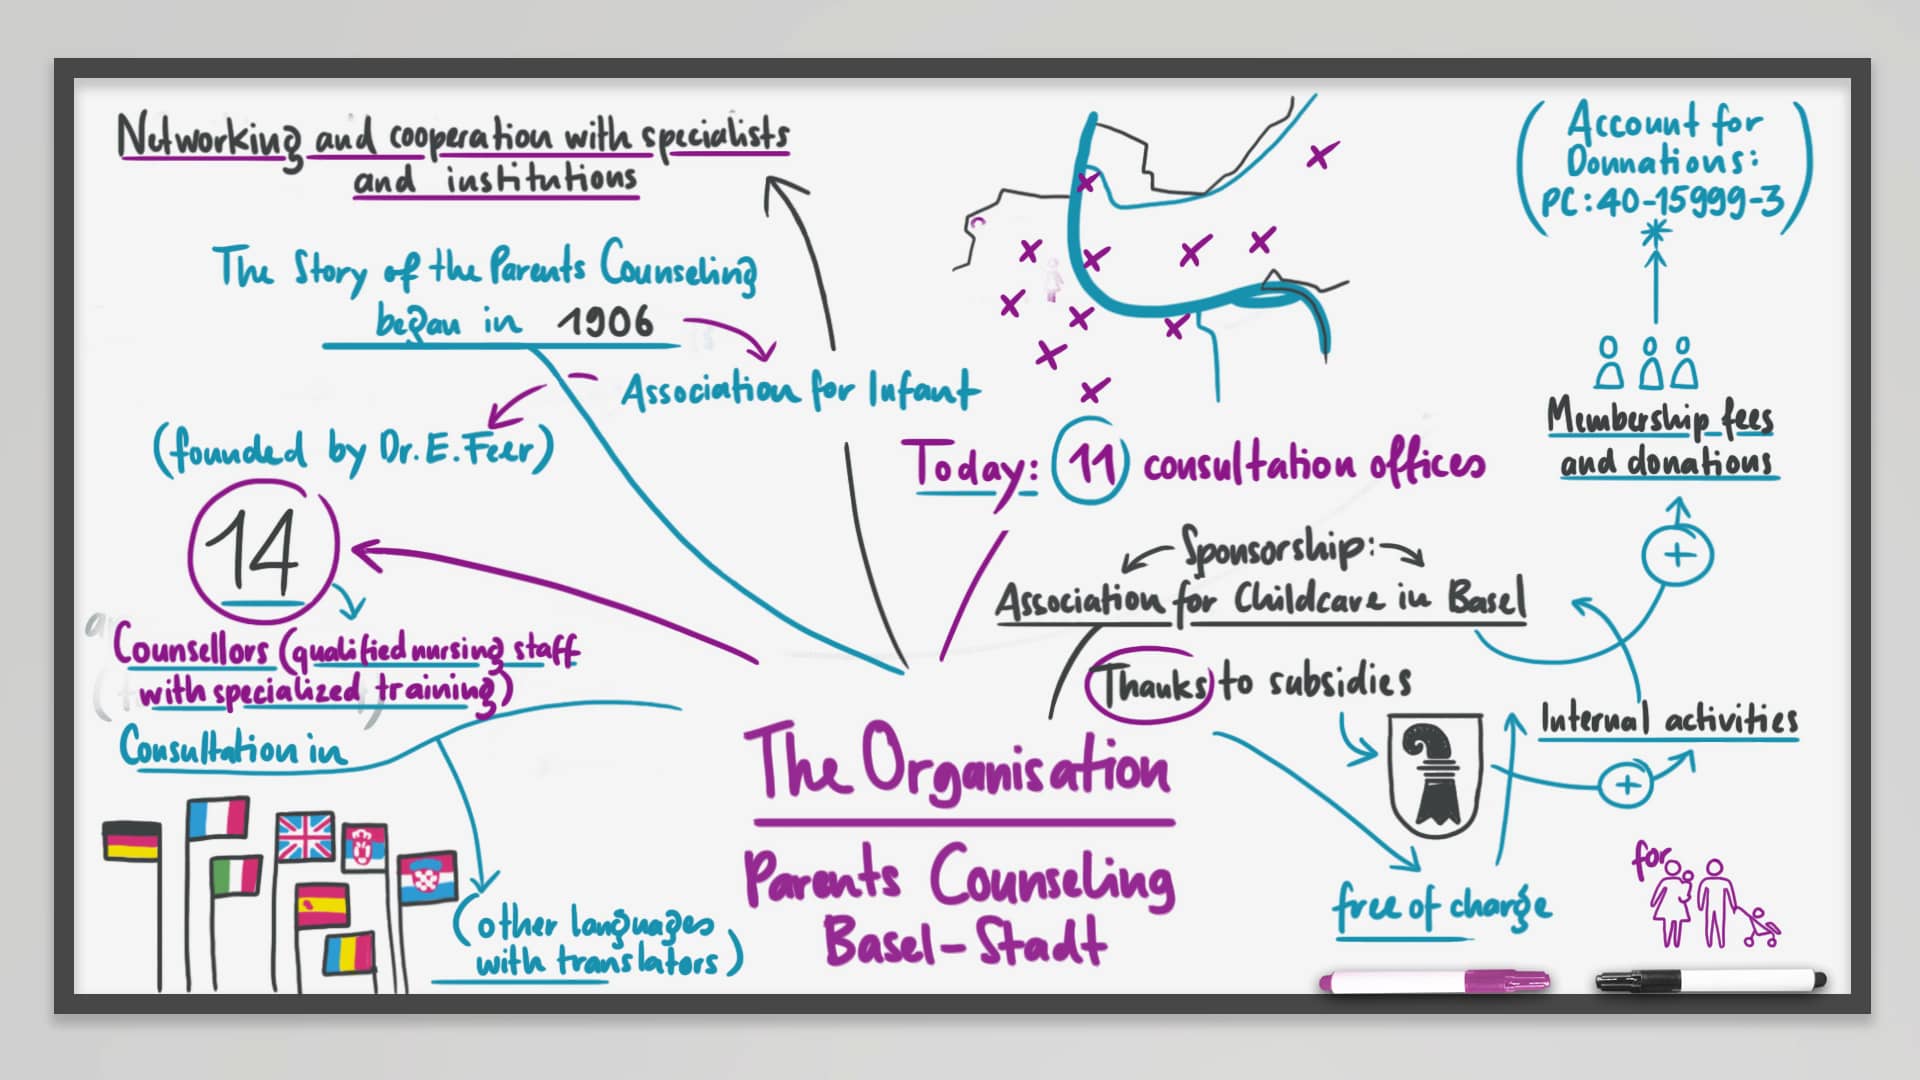 Networking and cooperation with specialists
and institutions
The Story of the Parents Counseling
began in 1906
Association for Infant
(founded by Dr. E. Feer)
14
Counsellors (qualified nursing staff
with specialized training)
Consultation in
(other languages
with translators)
The Organisation
Parents Counseling
Basel-Stadt
Today: 11 consultation offices
Sponsorship:
Association for Childcare in Basel
Thanks to subsidies
free of charge
for
Internal activities
Membership fees
and donations
(Account for
Donnations:
PC: 40-15999-3)